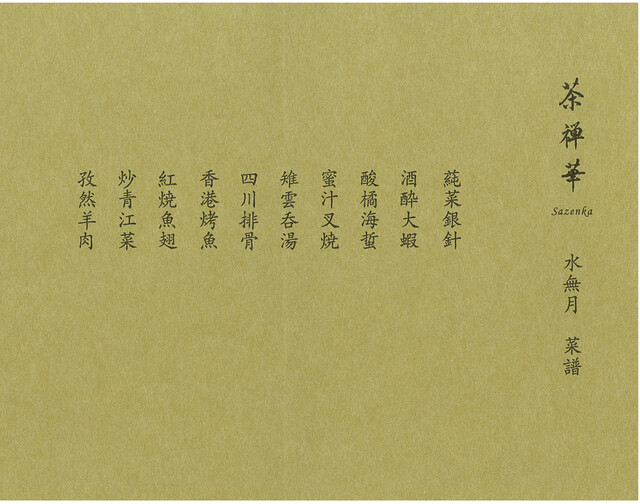 茶禅華
Sazenka
水無月 菜譜
蒓菜銀針
酒酔大蝦
酸橘海蜇
蜜汁叉焼
雉雲呑湯
四川排骨
香港烤魚
紅焼魚翅
炒青江菜
孜然羊肉